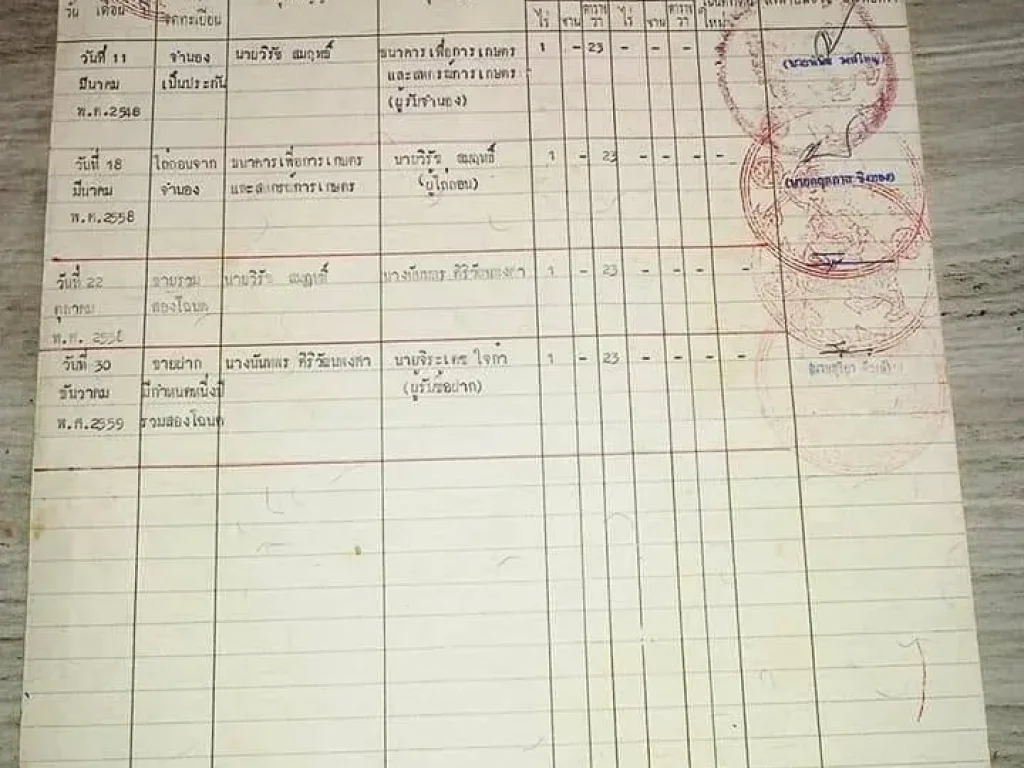 วัน เดือน
จดทะเบียน
ไร่ งาน ตาราง วา ไร่ งาน ตาราง วา
ใหม่
วันที่ 11 จำนอง นายวิรัช สมฤทธิ์ ธนาคารเพื่อการเกษตร 1 - 23 - - - - -
มีนาคม เป็นประกัน และสหกรณ์การเกษตร
พ.ศ.2548 (ผู้รับจำนอง)
วันที่ 18 ไถ่ถอนจาก ธนาคารเพื่อการเกษตร นายวิรัช สมฤทธิ์ 1 - 23 - - - - -
มีนาคม จำนอง และสหกรณ์การเกษตร (ผู้ไถ่ถอน)
พ.ศ.2558
วันที่ 22 ขายรวม นายวิรัช สมฤทธิ์ นางนันทพร ศิริวัฒนพงศา 1 - 23 - - - - -
ตุลาคม สองโฉนด
พ.ศ. 2558
วันที่ 30 ขายฝาก นางนันทพร ศิริวัฒนพงศา นายจิระเดช ใจกำ 1 - 23 - - - - -
ธันวาคม มีกำหนดหนึ่งปี (ผู้รับซื้อฝาก)
พ.ศ.2559 รวมสองโฉนด